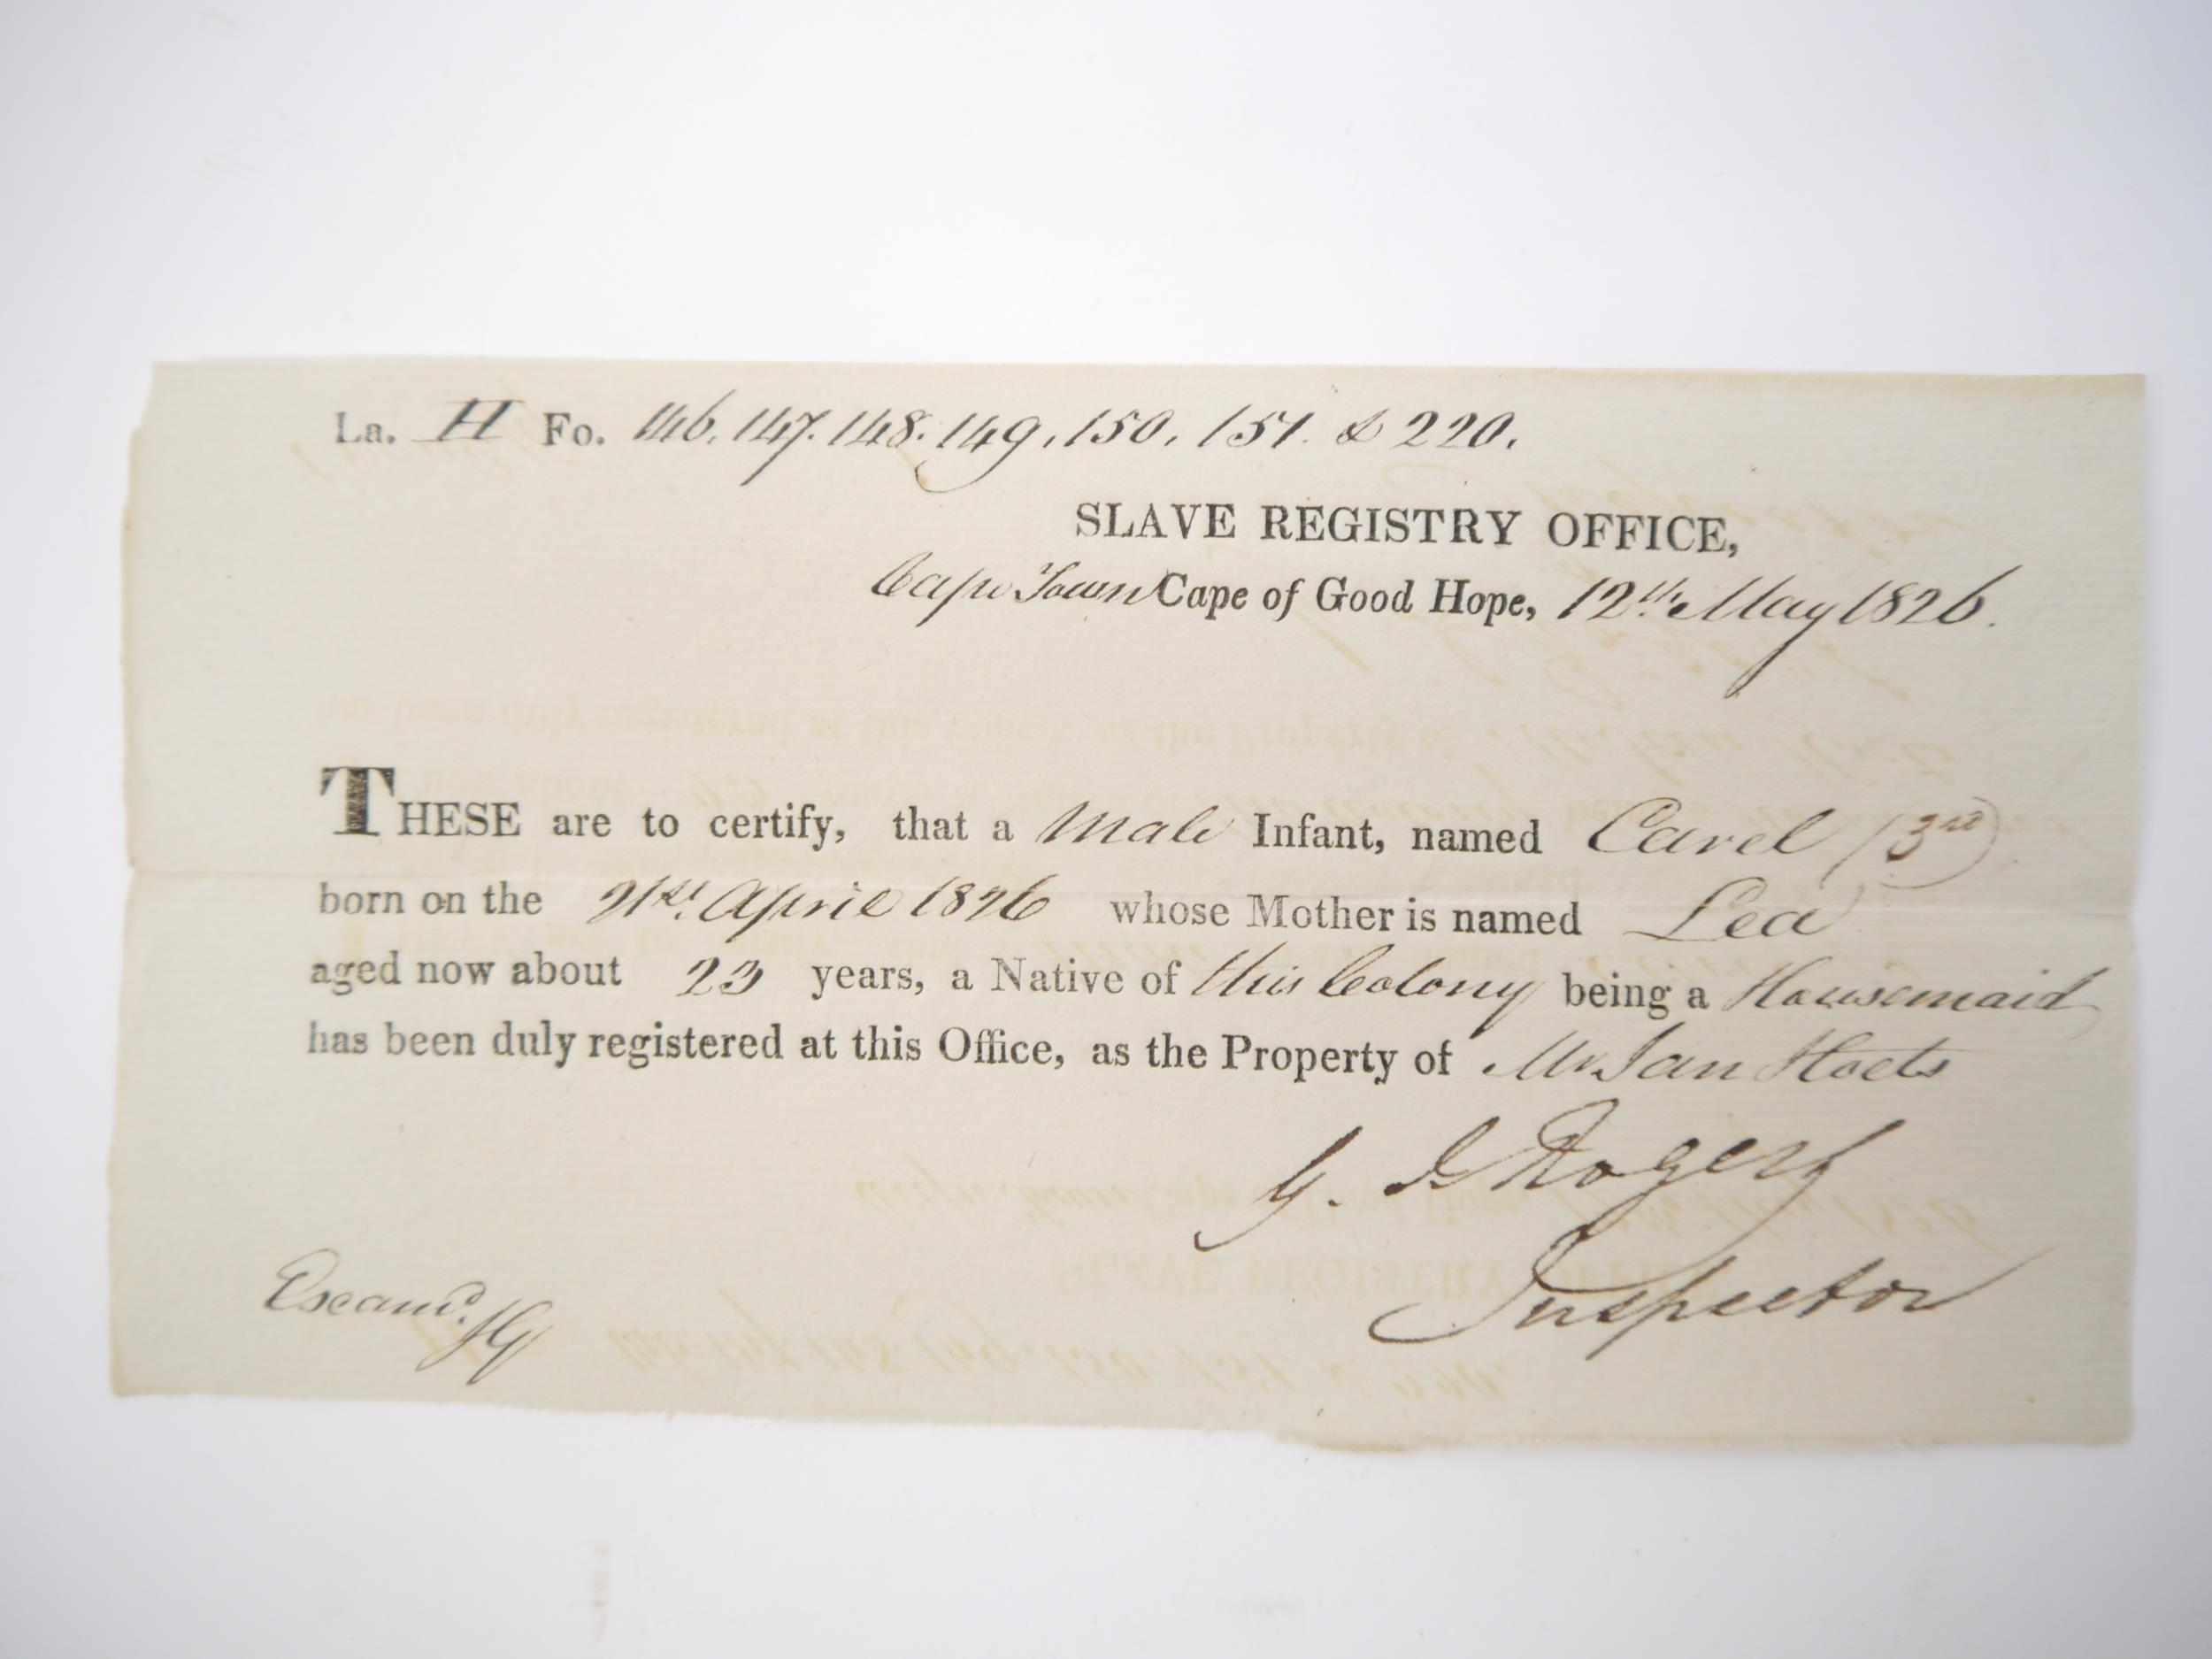 La. H Fo. 146. 147. 148. 149. 150. 151. & 220.
SLAVE REGISTRY OFFICE,
Cape Town Cape of Good Hope, 12th May 1826.
THESE are to certify, that a Male Infant, named Carel (3rd)
born on the 21st April 1826 whose Mother is named Lea
aged now about 23 years, a Native of this Colony being a Housemaid
has been duly registered at this Office, as the Property of Mr Jan Hoets
G. J Rogers
Inspector
Examd.